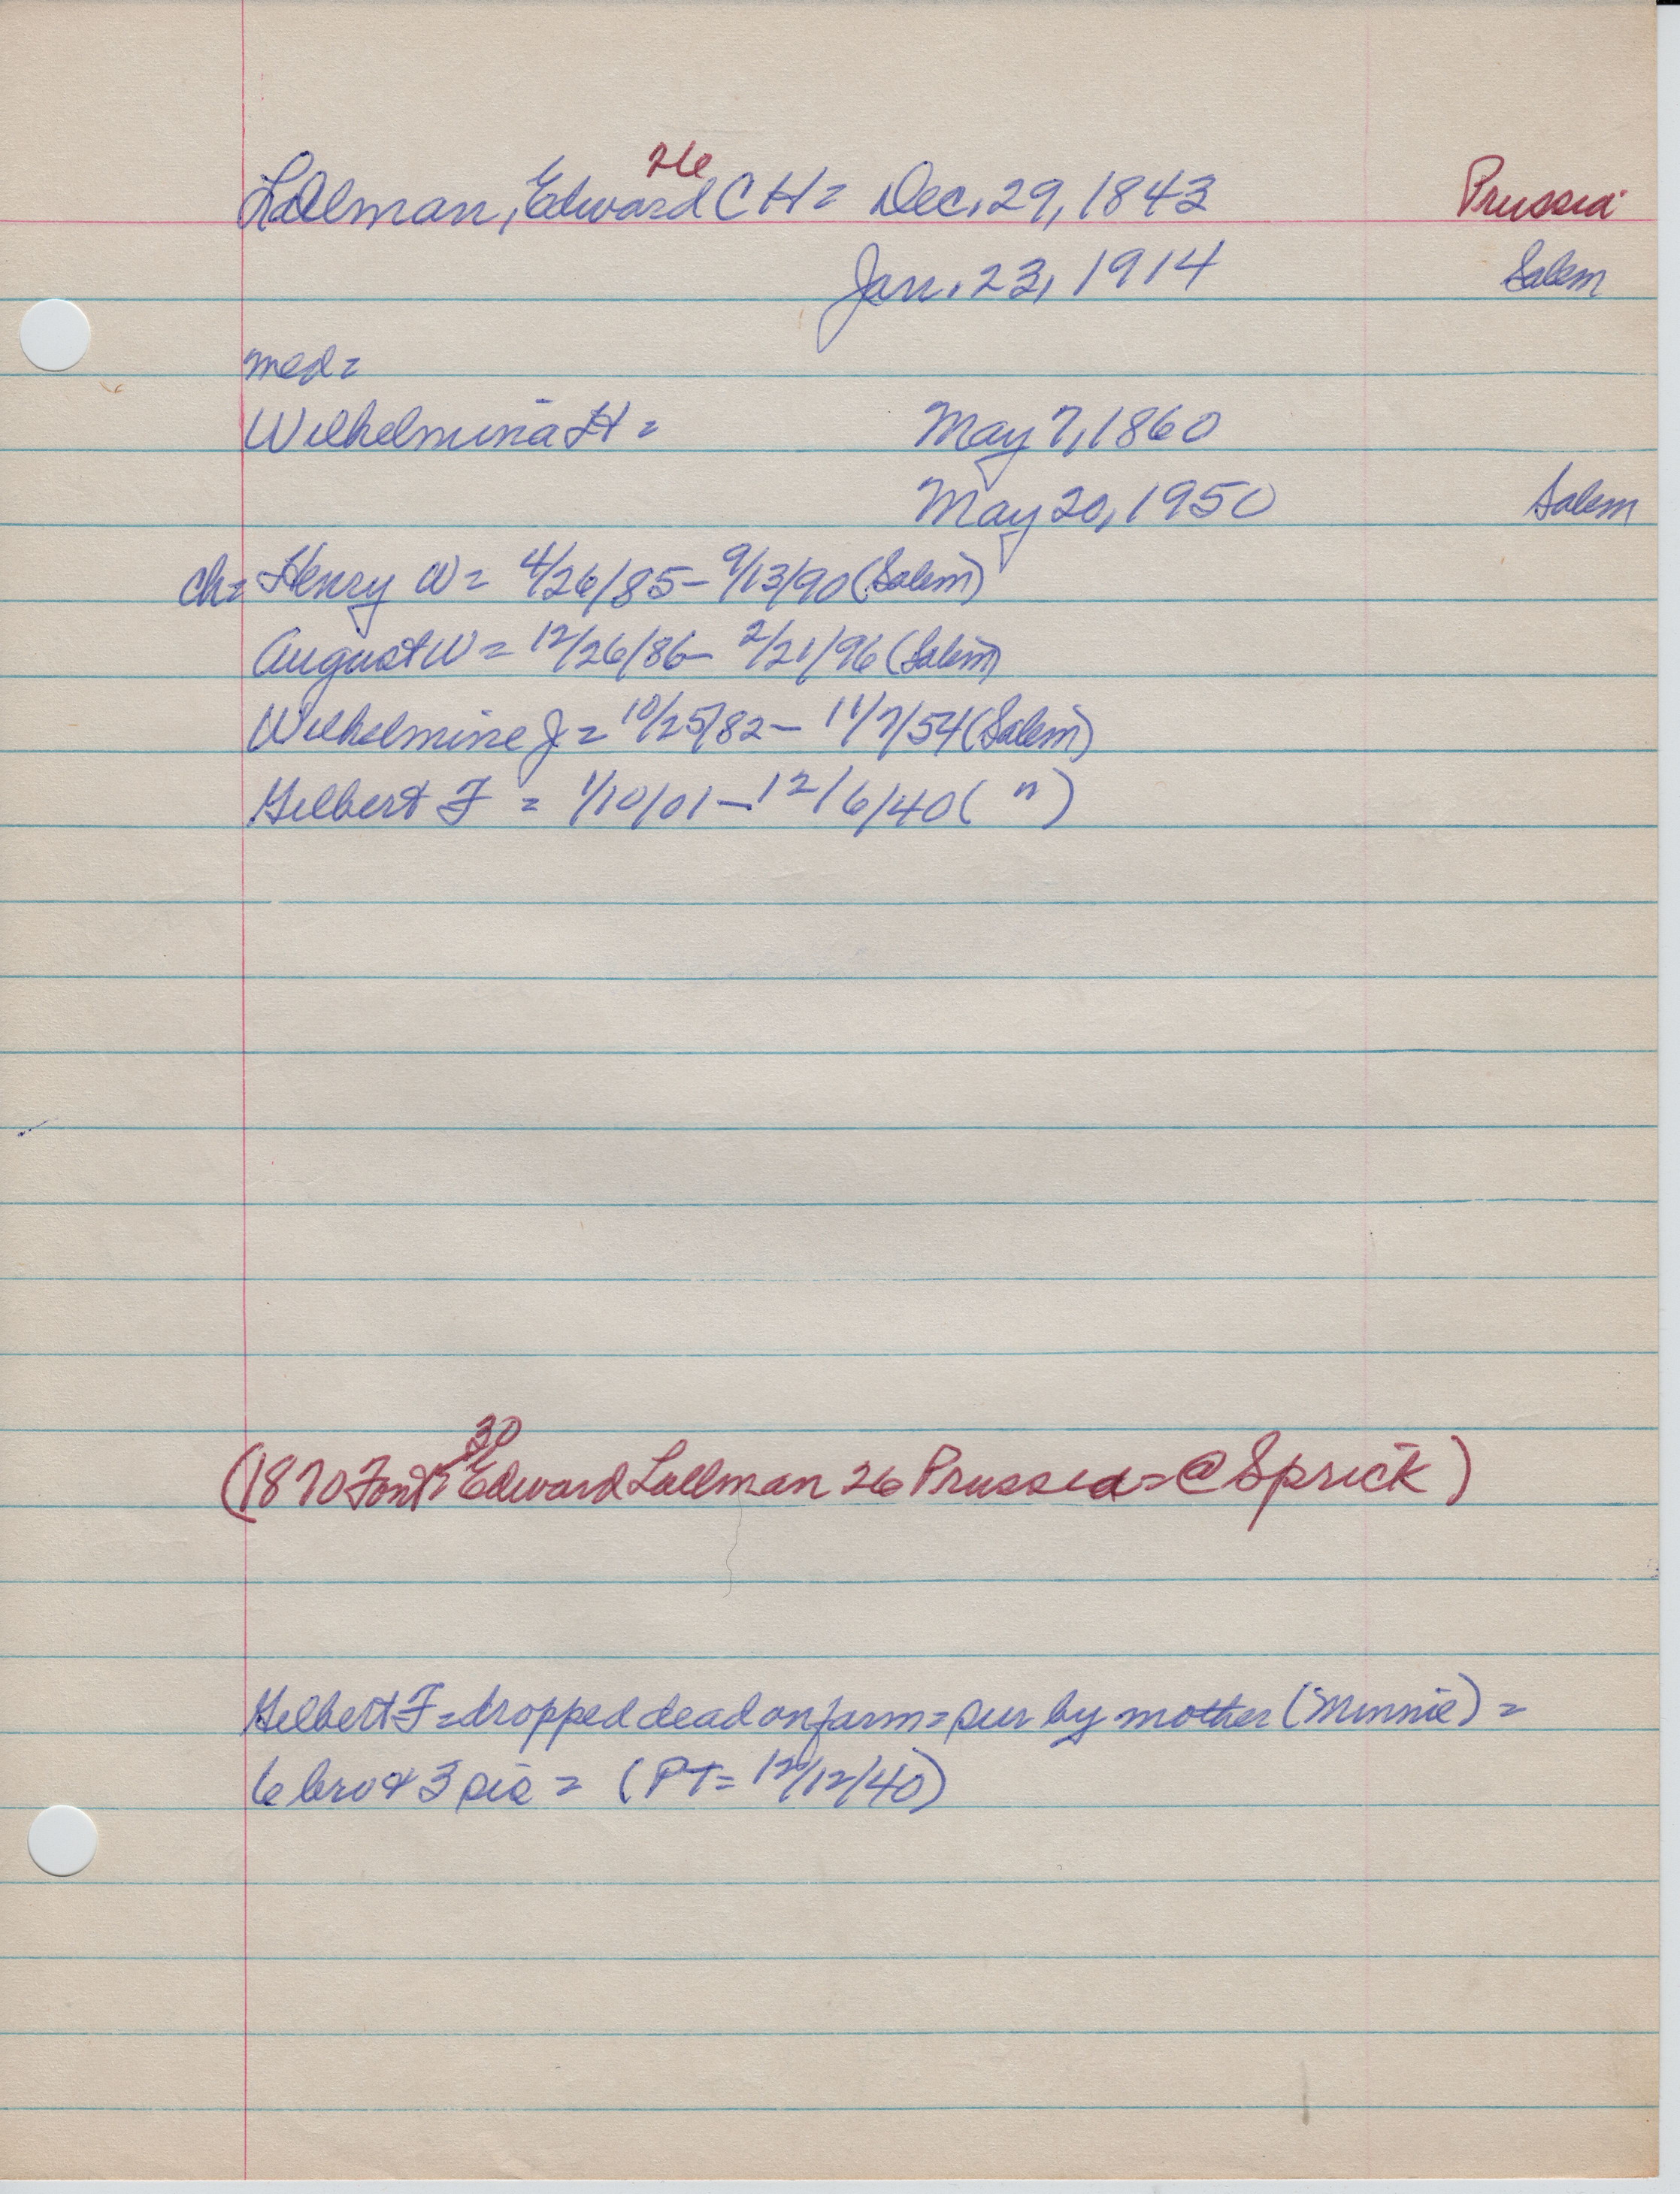 26
Lallman, Edward C H = Dec. 29, 1843 Prussia
Jan. 23, 1914 Salem
med =
Wilhelmina H = May 7, 1860
May 20, 1950 Salem
ch = Henry W = 4/26/85 - 9/13/90 (Salem)
August W = 12/26/86 - 2/21/96 (Salem)
Wilhelmine J = 10/25/82 - 11/7/54 (Salem)
Gilbert F = 1/10/01 - 12/6/40 ( " )
30
(1870 Font = Edward Lallman 26 Prussia = @ Sprick)
Gilbert F = dropped dead on farm = sur by mother (Minnie) =
6 bro & 3 sis = (PT = 12/12/40)